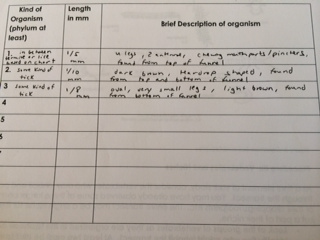 Kind of
Organism
(phylum at
least)
Length
in mm
Brief Description of organism
1. in between
based on chart
1/5
mm
legs, 2 antennae, chewing mouthparts/pinchers,
found from top of funnel
2. some kind of
tick
1/10
mm
dark brown, teardrop shaped, found
from top and bottom of funnel
3 some kind of
tick
1/8
mm
oval, very small legs, light brown, found
from bottom of funnel
4
5